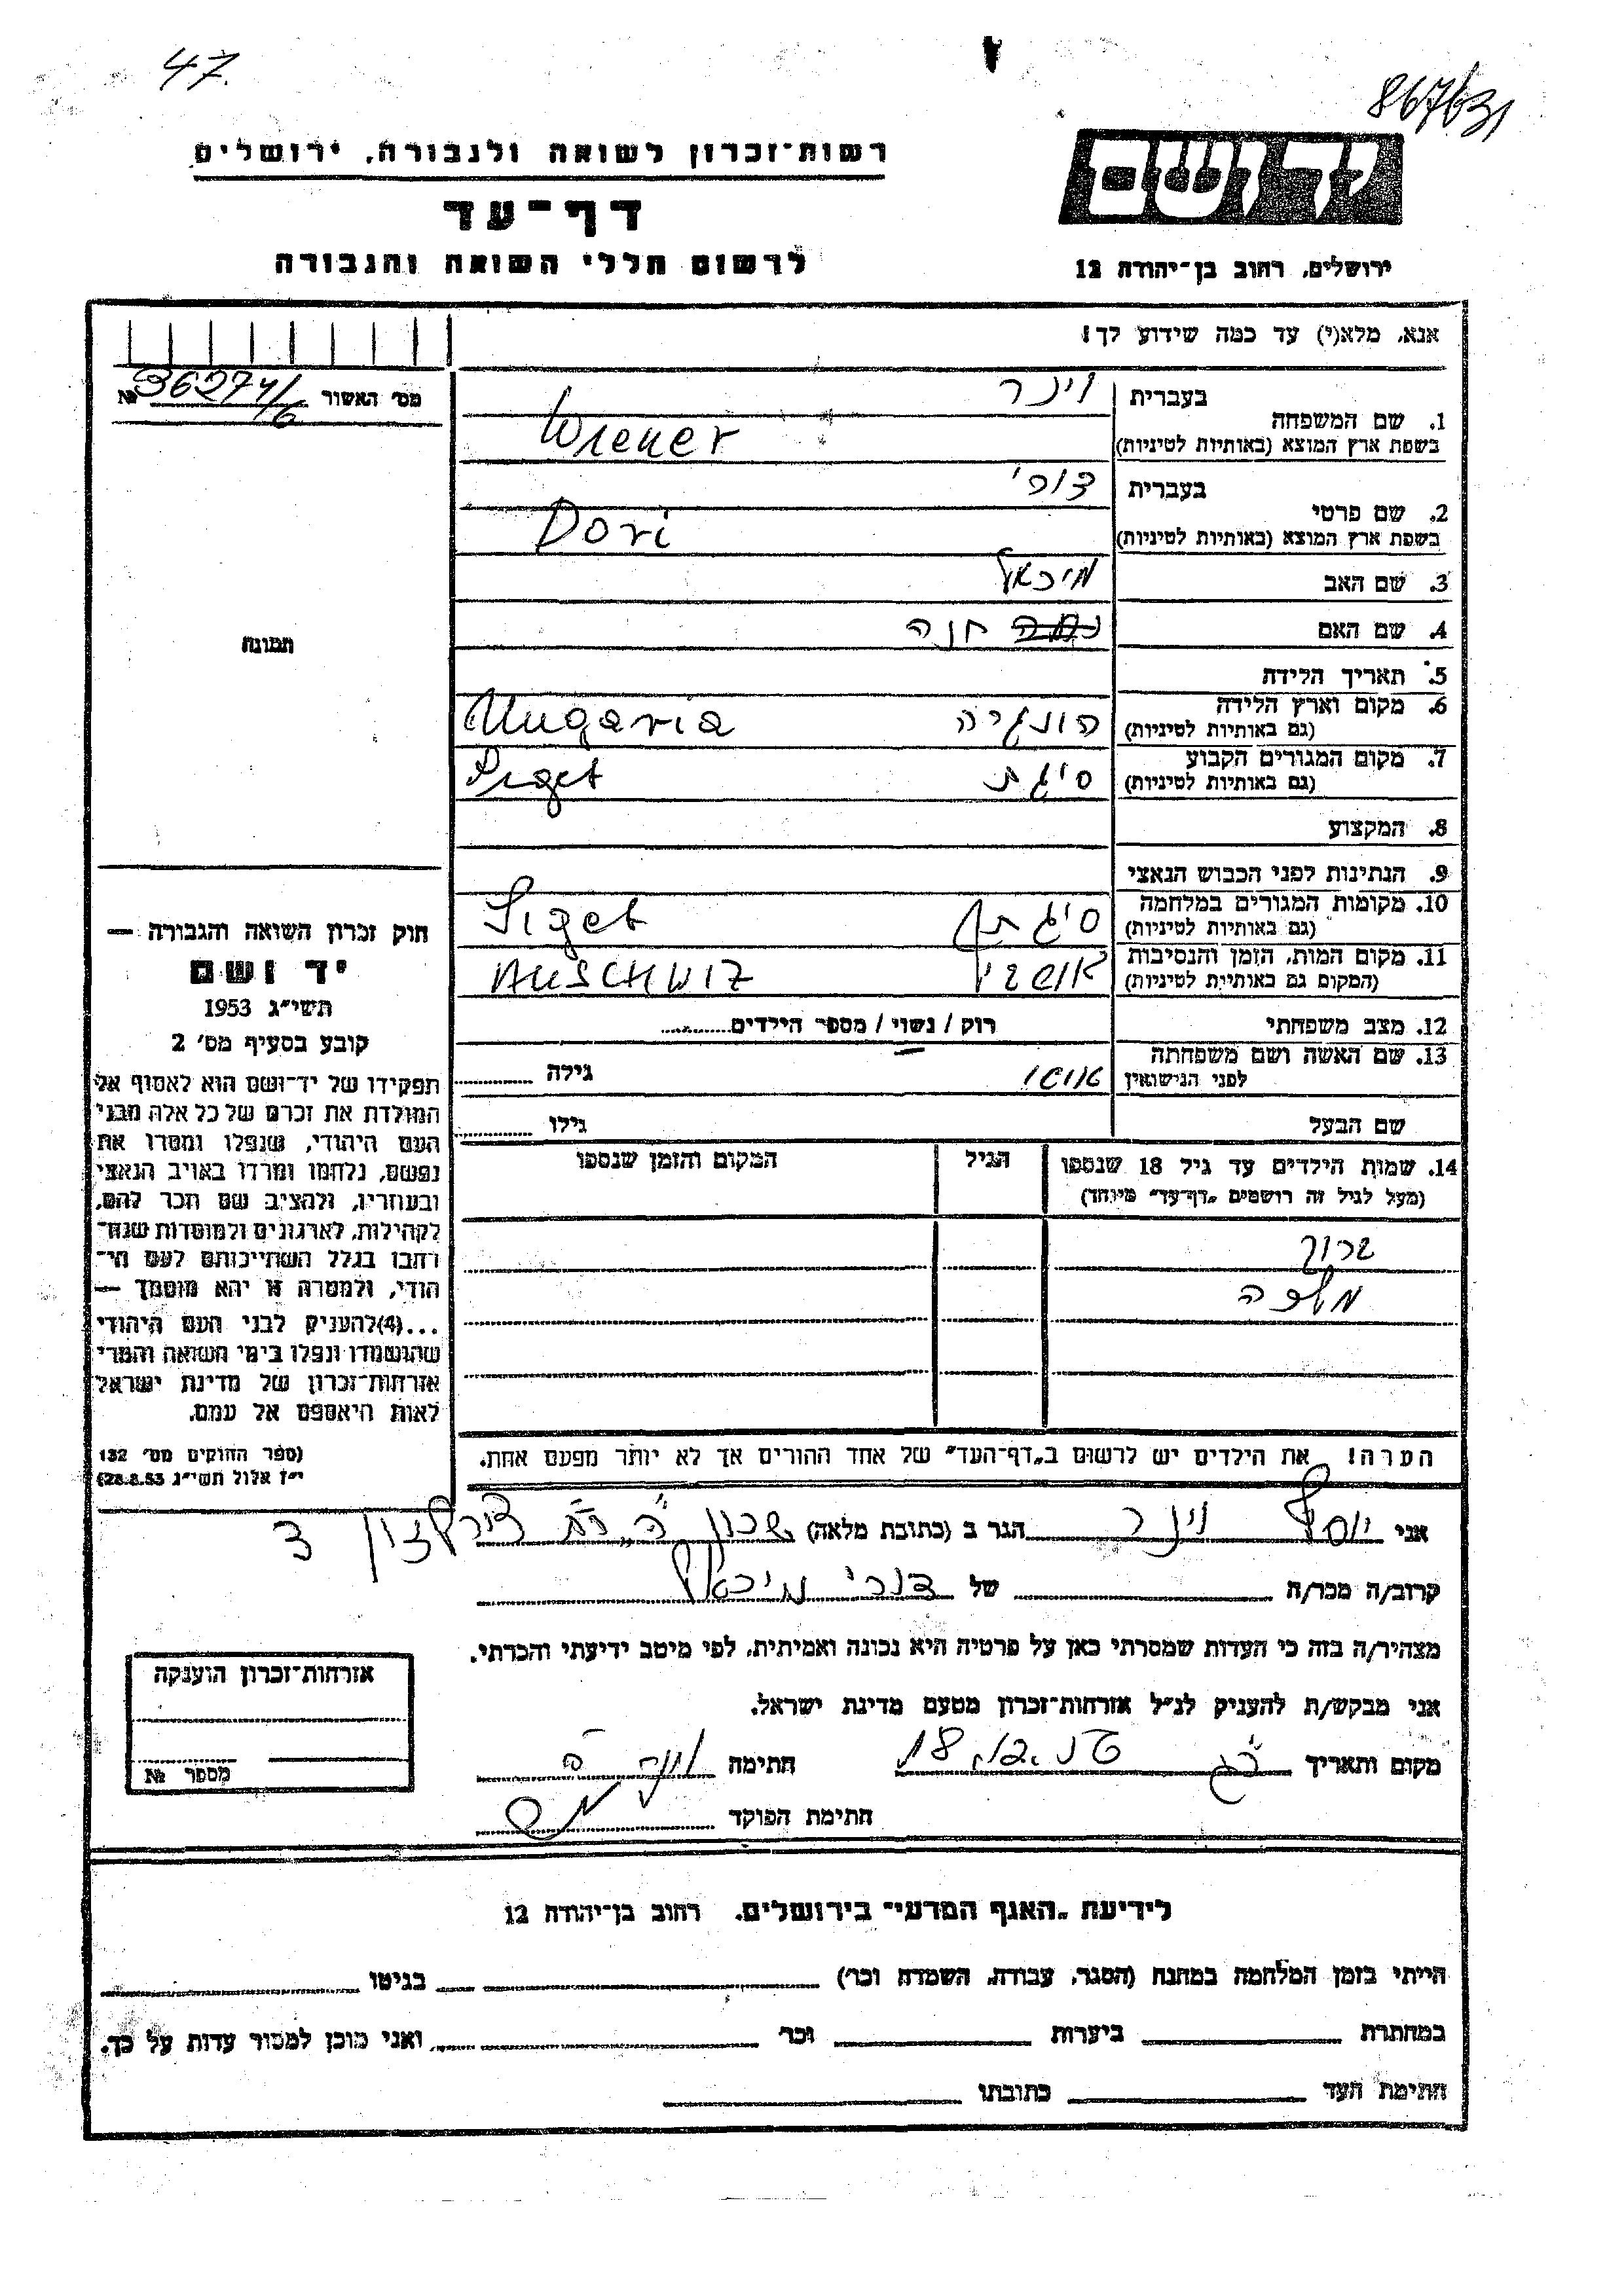 47.
867631
רשות-זכרון לשואה ולגבורה, ירושלים
דף-עד
לרשום חללי השואה והגבורה
יד ושם
ירושלים, רחוב בן-יהודה 12
אנא, מלא(י) עד כמה שידוע לך!
מס' האשור №
בעברית וינר
1. שם המשפחה
בשפת ארץ המוצא (באותיות לטיניות) Wiener
בעברית דורי
2. שם פרטי
בשפת ארץ המוצא (באותיות לטיניות) Dori
3. שם האב מיכאל
4. שם האם חנה
5. תאריך הלידה
6. מקום וארץ הלידה
(גם באותיות לטיניות) הונגריה Hungaria
7. מקום המגורים הקבוע
(גם באותיות לטיניות) סיגת Siget
8. המקצוע
9. הנתינות לפני הכבוש הנאצי
10. מקומות המגורים במלחמה
(גם באותיות לטיניות) סיגת Siget
11. מקום המות, הזמן והנסיבות
(המקום גם באותיות לטיניות) AUSCHWIZ
12. מצב משפחתי רוק / נשוי / מספר הילדים
13. שם האשה ושם משפחתה
לפני הנישואין גילה
שם הבעל גילו
14. שמות הילדים עד גיל 18 שנספו הגיל המקום והזמן שנספו
(מעל לגיל זה רושמים „דף-עד" מיוחד)
ברוך
מלכה
הערה! את הילדים יש לרשום ב„דף-העד" של אחד ההורים אך לא יותר מפעם אחת.
תמונה
חוק זכרון השואה והגבורה —
יד ושם
תשי"ג 1953
קובע בסעיף מס' 2
תפקידו של יד-ושם הוא לאסוף אל
המולדת את זכרם של כל אלה מבני
העם היהודי, שנפלו ומסרו את
נפשם, נלחמו ומרדו באויב הנאצי
ובעוזריו, ולהציב שם וזכר להם,
לקהילות, לארגונים ולמוסדות שנח-
רבו בגלל השתייכותם לעם הי-
הודי, ולמטרה זו יהא מוסמך —
...(4) להעניק לבני העם היהודי
שהושמדו ונפלו בימי השואה והמרי
אזרחות-זכרון של מדינת ישראל
לאות היאספם אל עמם.
(ספר החוקים מס' 132
י"ז אלול תשי"ג 28.8.53)
אני יוסף וינר הגר ב (כתובת מלאה) שכון
קרוב/ה מכר/ה של דורי מיכאל
מצהיר/ה בזה כי העדות שמסרתי כאן על פרטיה היא נכונה ואמיתית, לפי מיטב ידיעתי והכרתי.
אני מבקש/ת להעניק לנ"ל אזרחות-זכרון מטעם מדינת ישראל.
מקום ותאריך חתימה
חתימת הפוקד
אזרחות-זכרון הוענקה
מספר №
לידיעת „האגף המדעי" בירושלים, רחוב בן-יהודה 12
הייתי בזמן המלחמה במחנה (הסגר, עבודה, השמדה וכו') בגיטו
במחתרת ביערות וכו' ואני מוכן למסור עדות על כך.
חתימת העד כתובתו